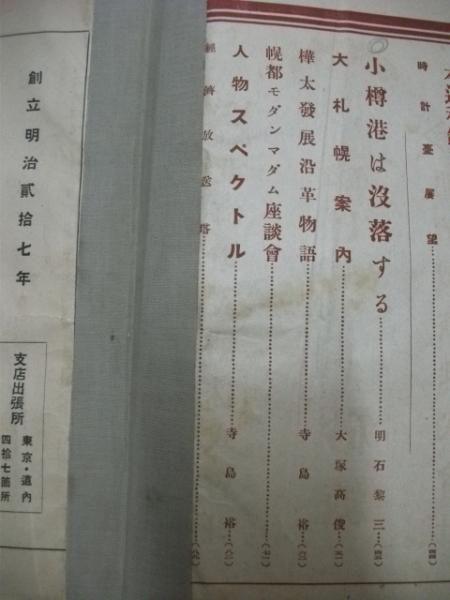 時計臺展望
小樽港は沒落する 明石黎三
大札幌案內 大塚高俊
樺太發展沿革物語 寺島裕
幌都モダンマダム座談會
人物スペクトル 寺島裕
經濟放送塔
創立明治貳拾七年
支店出張所
東京・道內
四拾七箇所